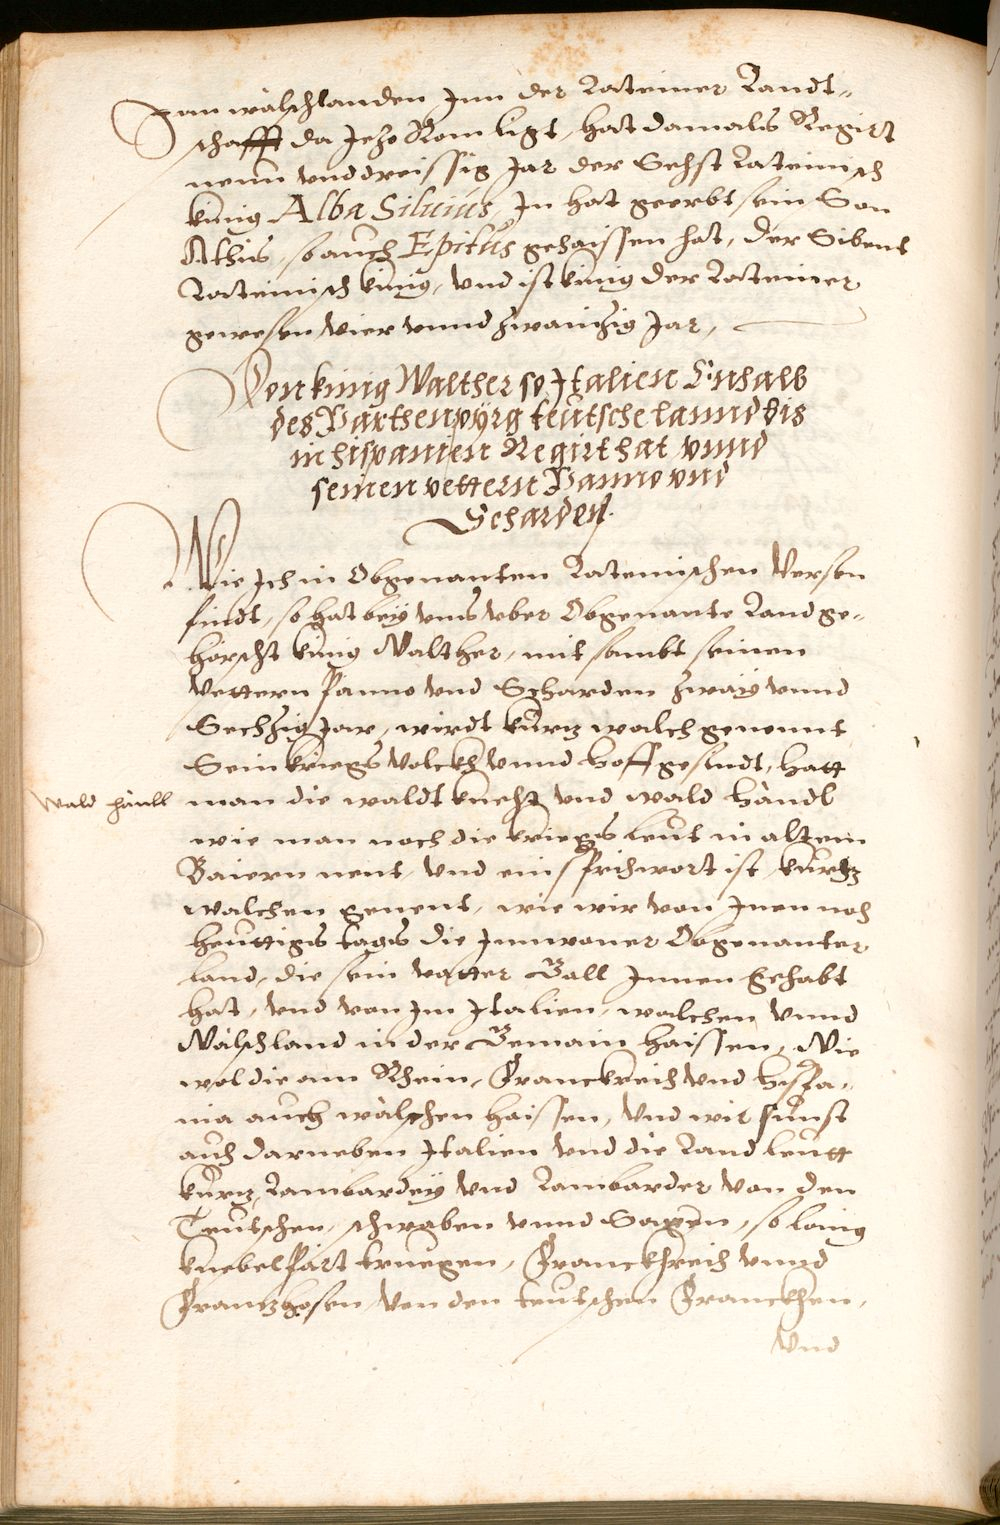 Inn wälschlanden Inn der Lateiner Landt„
schafft da Jeho Rom ligt, hat damals Regirt
neun unddreissig Jar der Sechst Lateinisch
künig Alba Siluius, In hat geerbt sein Son
Athis, so auch Epitus gehaissen hat, der Sibent
Lateinisch künig, vnd ist künig der Lateiner
gewesen vier vnnd zwainzig Jar,
Von künig Walther so Italien Enhalb
des Parthenpyrg teutsche lannd bis
in hispanien Regirt hat vnnd
seinen vettern Panno vnd
Scharden.
Wie Ich in Obgenanten Lateinischen Versen
findt, so hat bey vnns vber Obgenante Land ge„
hörscht künig Walther, mit sambt seinen
Vettern Panno vnd Scharden zway vnnd
Sechzig Jar, wirdt kürtz walch genennt
Sein kriegs Volckh vnnd hoffgesindt, hatt
wald händl
man die waldt knecht vnd wald händl
wie man noch die kriegs leut in altem
Baiern nent, vnd ein sprichwort ist, kurtz
walchen genent, wie wir von Inen noch
heuttigs tags die Innwoner Obgenanter
land, die sein vatter Gall Innen gehabt
hat, vnd von Im Italien, walchen vnnd
Wälschland in der Gemain haissen, Wie
wol die am Rhein, Franckreich vnd hispa„
nia auch wälschen haissen, vnd wir sunst
auch darneben Italien vnd die Land leutt
kürtz, Lambardey vnd Lambarder von den
Teutschen, schwaben vnnd Saxen, so lang
knebelpärt truegen, Franckhreich vnnd
Frantzhosen, von den teutschen Franckhen,
Vnd